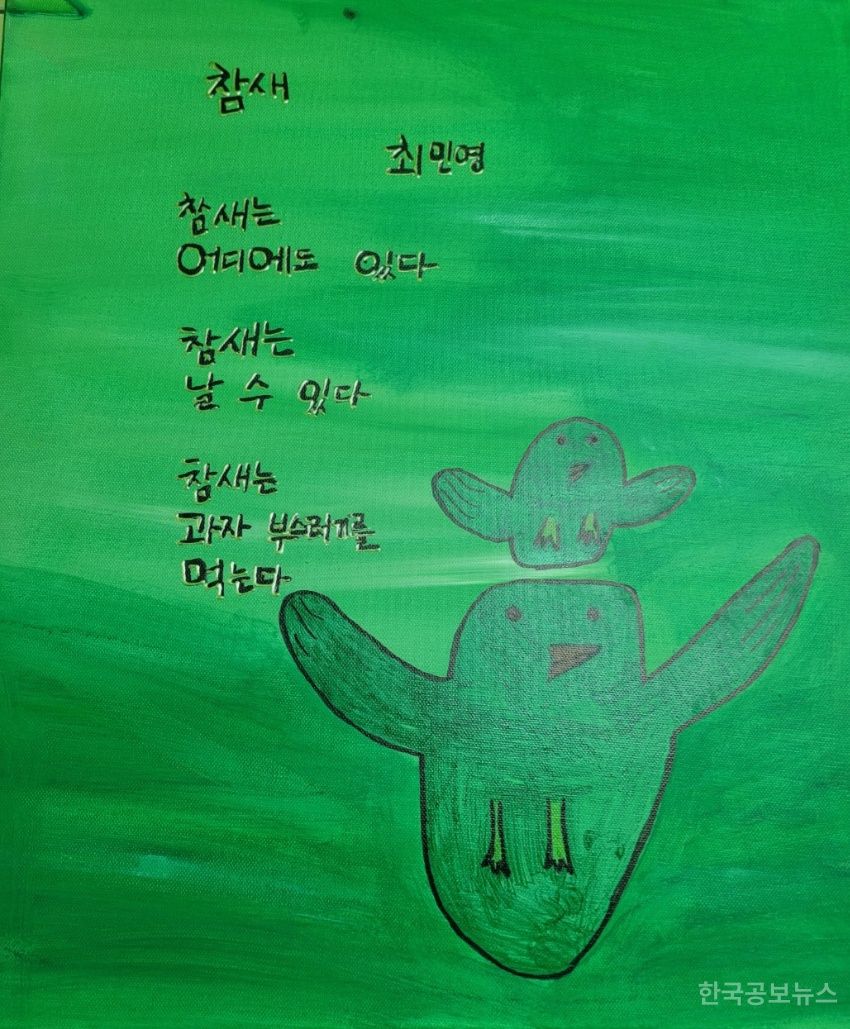 참새
최민영
참새는
어디에도 있다
참새는
날 수 있다
참새는
과자 부스러기를
먹는다
한국공보뉴스